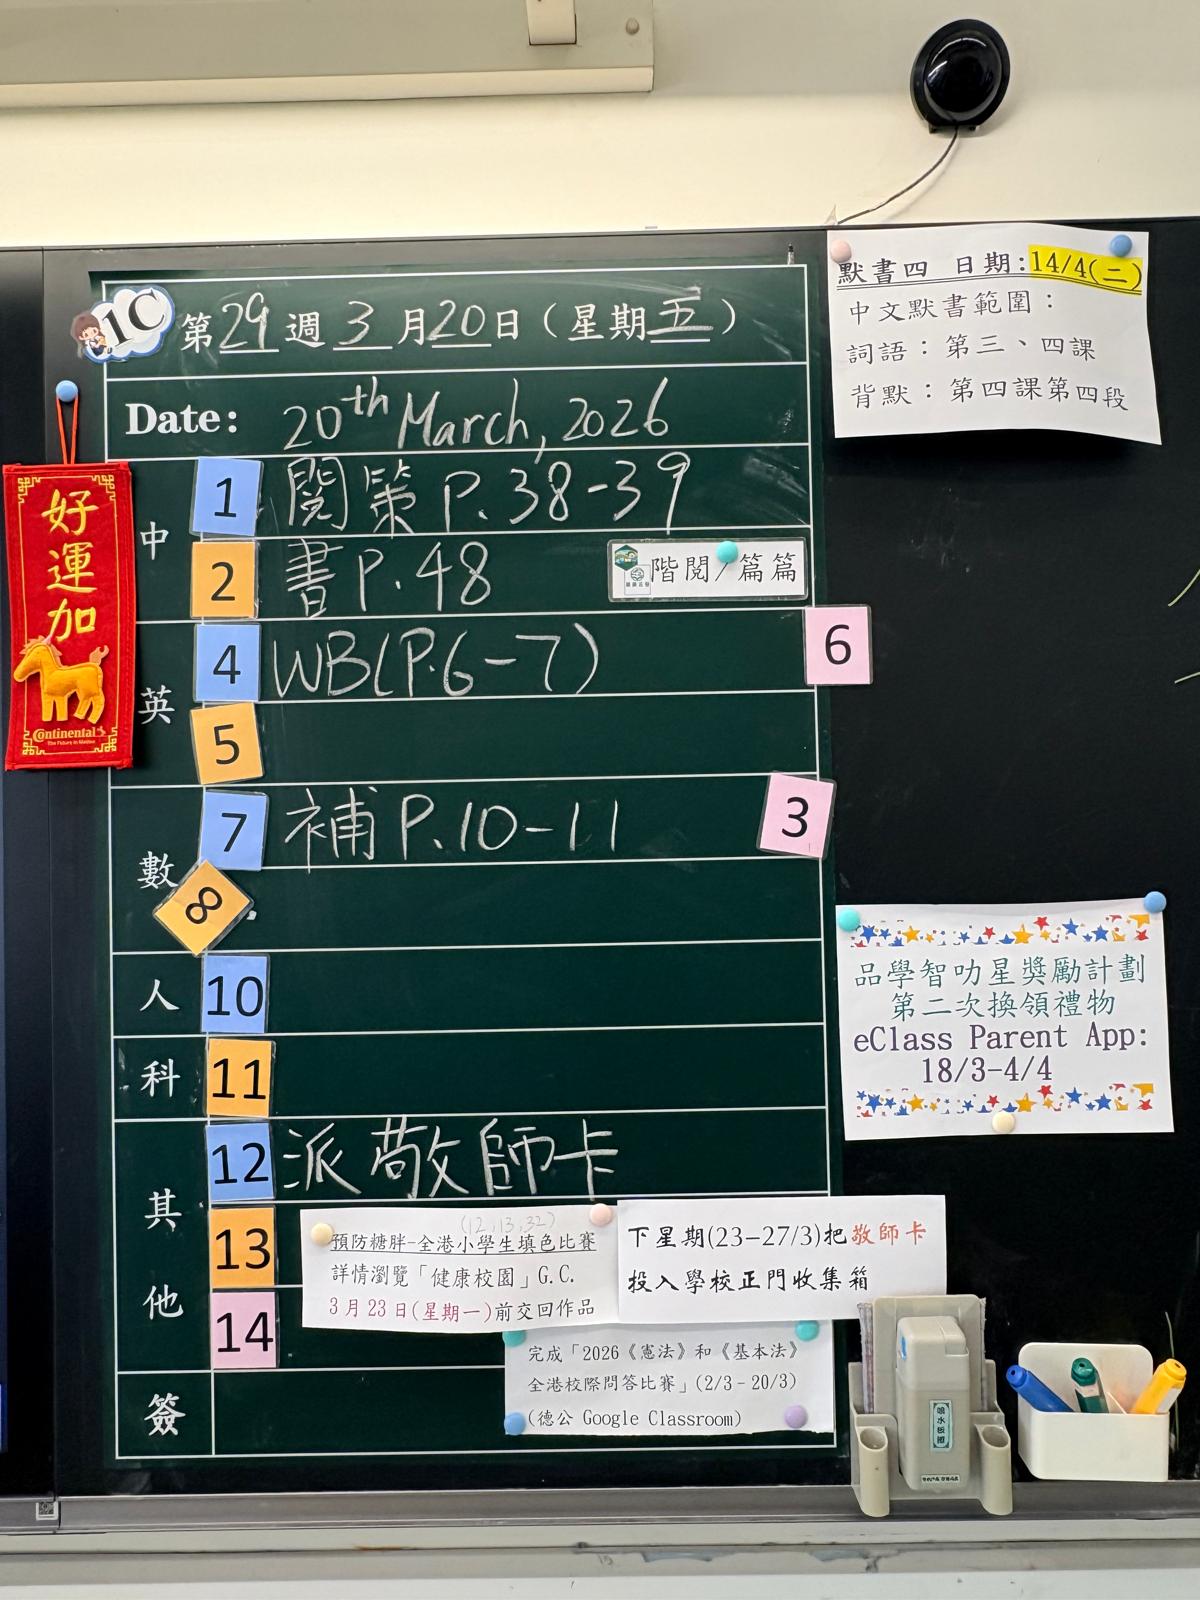 1C
第29週 3月20日（星期五）
Date: 20th March, 2026
中
1 閱策 P.38-39
2 書 P.48
階閱/篇篇
英
4 WB(P.6-7)
6
5
數
7 補 P.10-11
3
8
人 10
科 11
其他
12 派敬師卡
13
14
(12,13,32)
預防糖胖-全港小學生填色比賽
詳情瀏覽「健康校園」G.C.
3月23日(星期一)前交回作品
下星期(23-27/3)把敬師卡
投入學校正門收集箱
完成「2026《憲法》和《基本法》
全港校際問答比賽」(2/3-20/3)
(德公 Google Classroom)
簽
好運加
Continental
The Future in Motion
默書四 日期:14/4(二)
中文默書範圍：
詞語：第三、四課
背默：第四課第四段
品學智叻星獎勵計劃
第二次換領禮物
eClass Parent App:
18/3-4/4